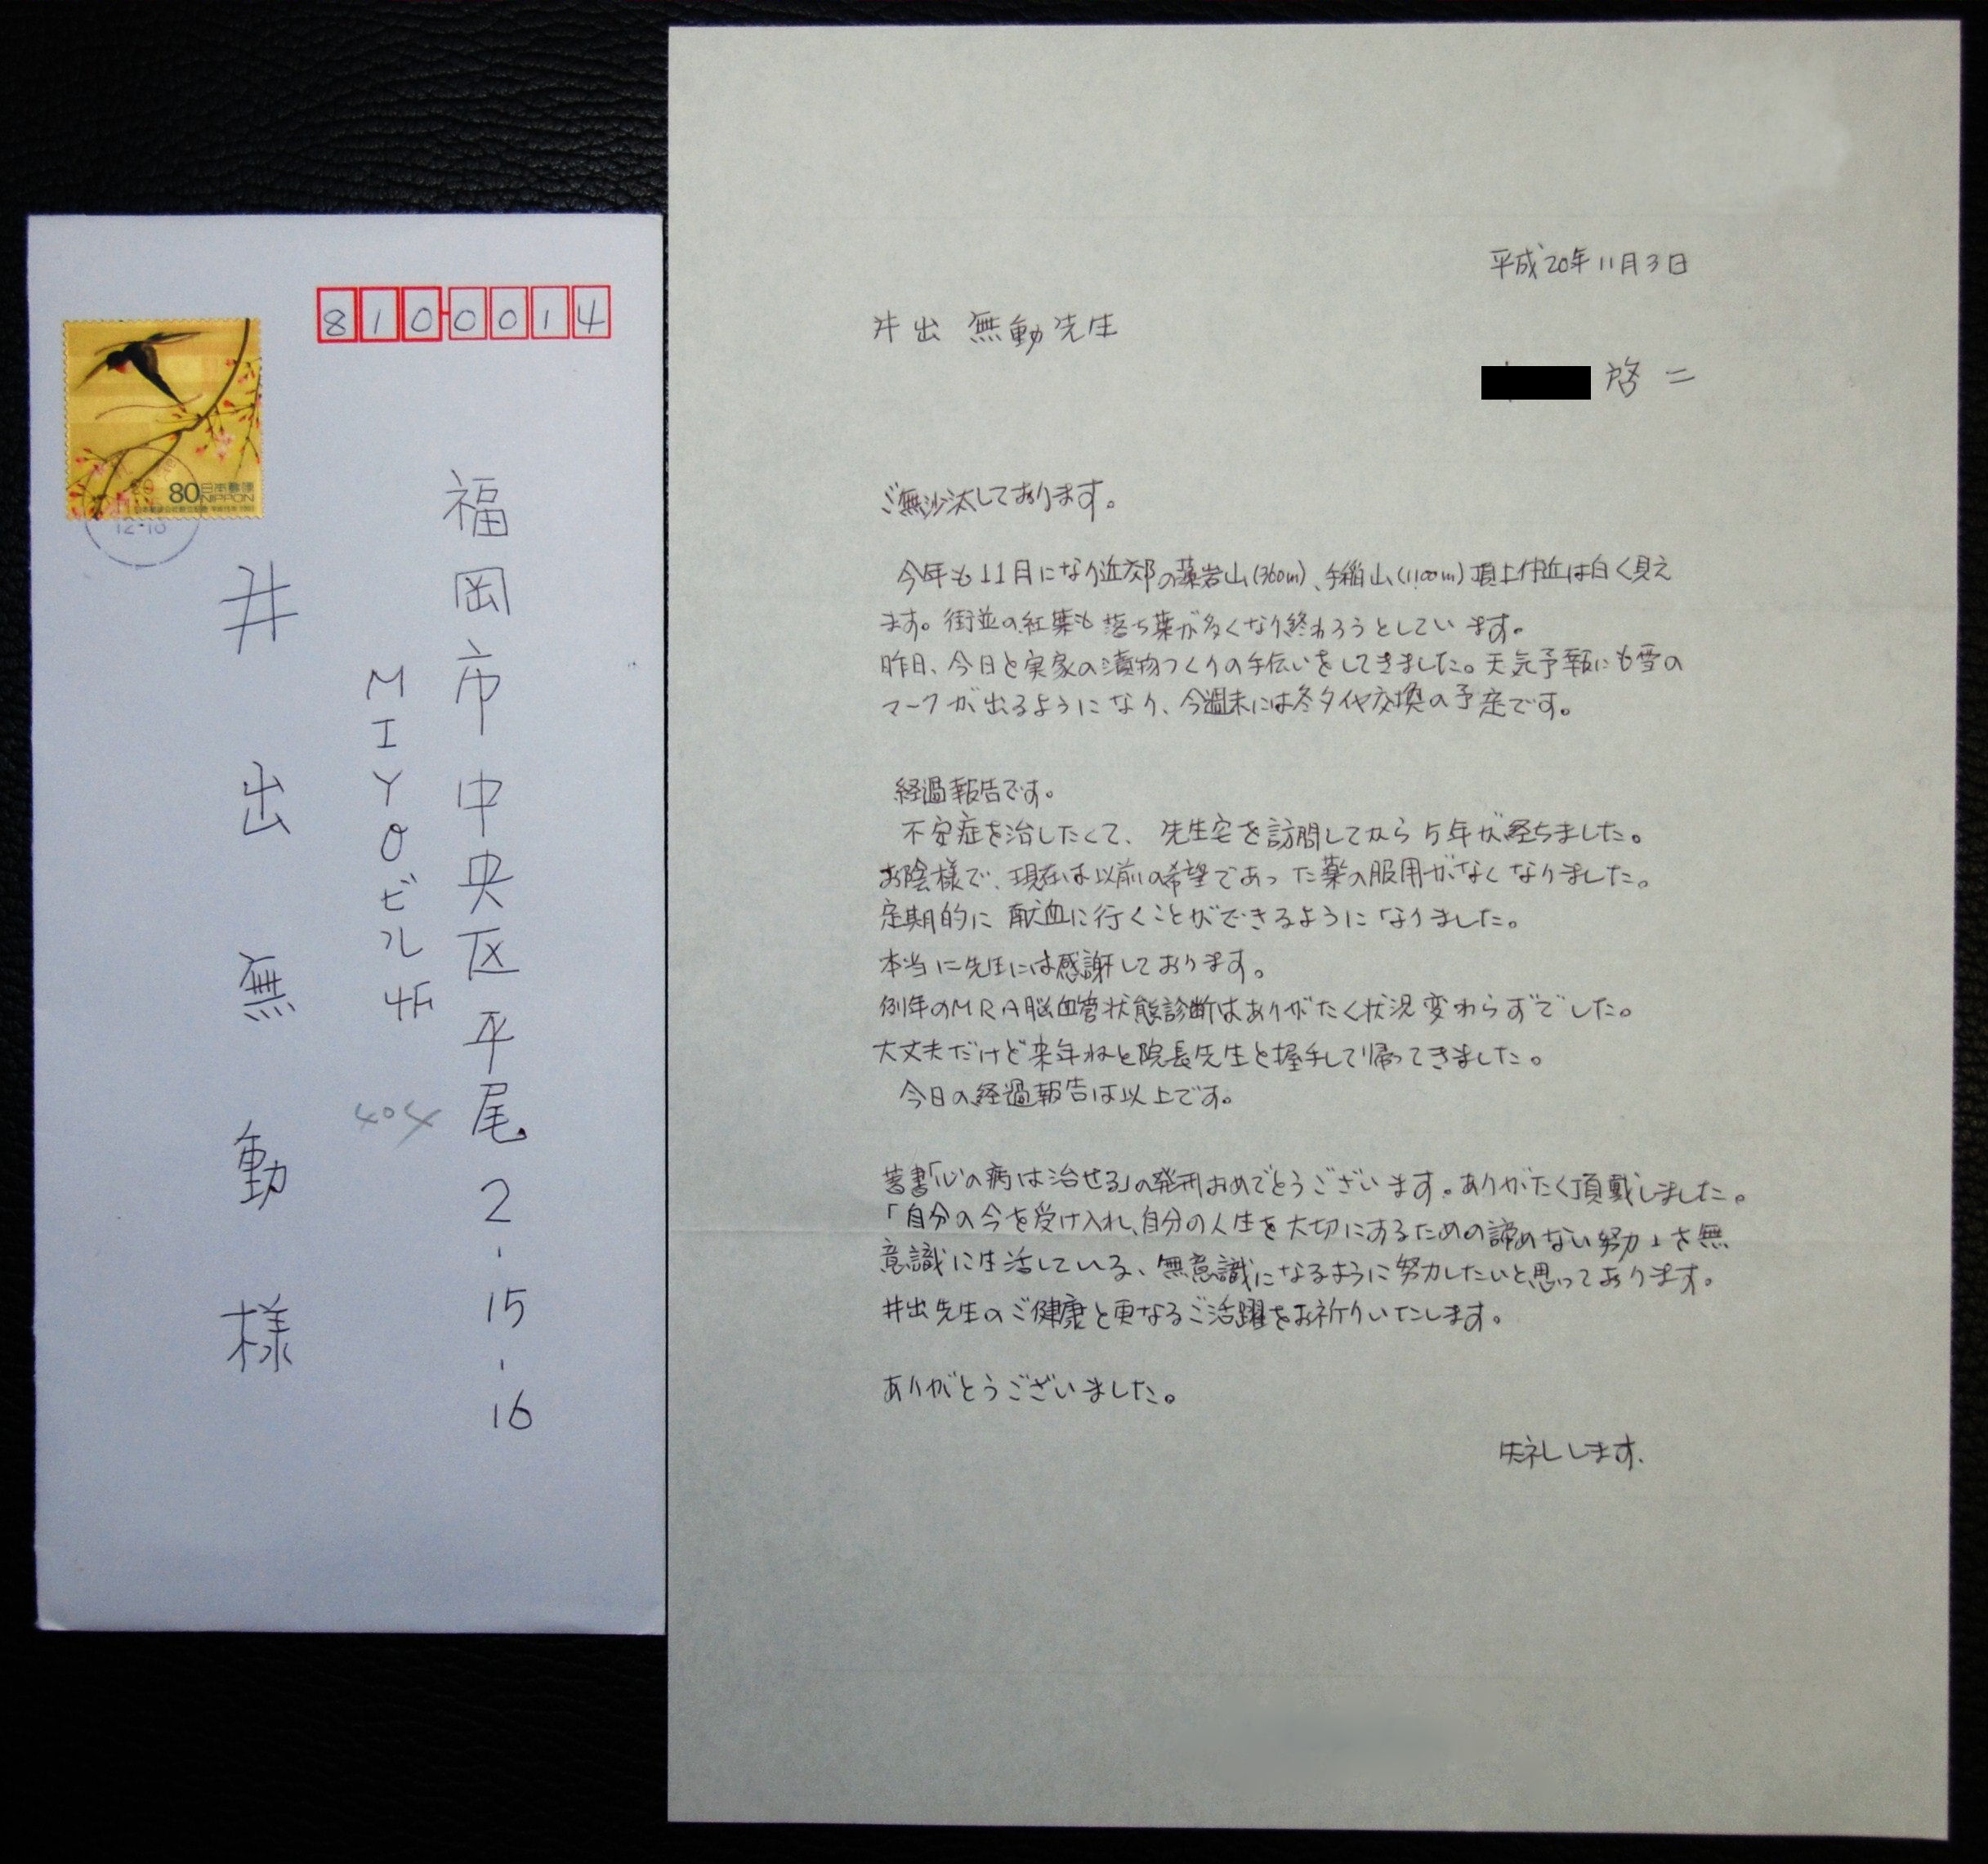 8100014
80 日本郵便
NIPPON
12-18
福岡市中央区平尾2-15-16
MIYOビル4F
404
井出無動様
平成20年11月3日
井出 無動先生
啓二
ご無沙汰しております。
今年も11月になり近郊の藻岩山(360m)、手稲山(1100m)頂上付近は白く見え
ます。街並の紅葉も落ち葉が多くなり終わろうとしています。
昨日、今日と実家の漬物つくりの手伝いをしてきました。天気予報にも雪の
マークが出るようになり、今週末には冬タイヤ交換の予定です。
経過報告です。
不安症を治したくて、先生宅を訪問してから5年が経ちました。
お陰様で、現在は以前の希望であった薬の服用がなくなりました。
定期的に献血に行くことができるようになりました。
本当に先生には感謝しております。
例年のMRA脳血管状態診断はありがたく状況変わらずでした。
大丈夫だけど来年ねと院長先生と握手して帰ってきました。
今日の経過報告は以上です。
著書「心の病は治せる」の発刊おめでとうございます。ありがたく頂戴しました。
「自分の今を受け入れ、自分の人生を大切にするための諦めない努力」を無
意識に生活している、無意識になるように努力したいと思っております。
井出先生のご健康と更なるご活躍をお祈りいたします。
ありがとうございました。
失礼します.